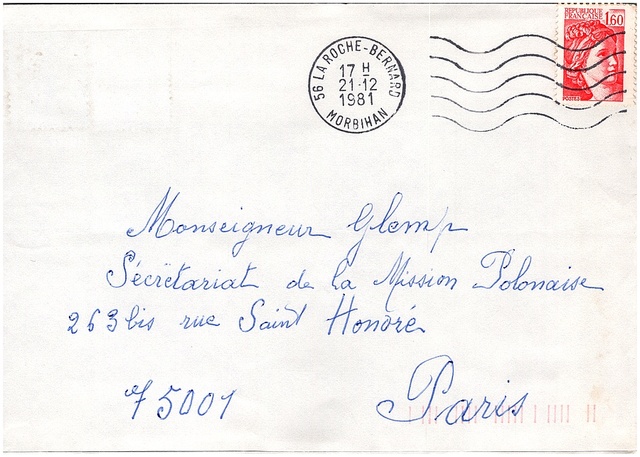 REPUBLIQUE
FRANÇAISE 1,60
POSTES
56 LA ROCHE-BERNARD
17 H
21-12
1981
MORBIHAN
Monseigneur Glemp
Sécrétariat de la Mission Polonaise
263 bis rue Saint Honoré
75001 Paris